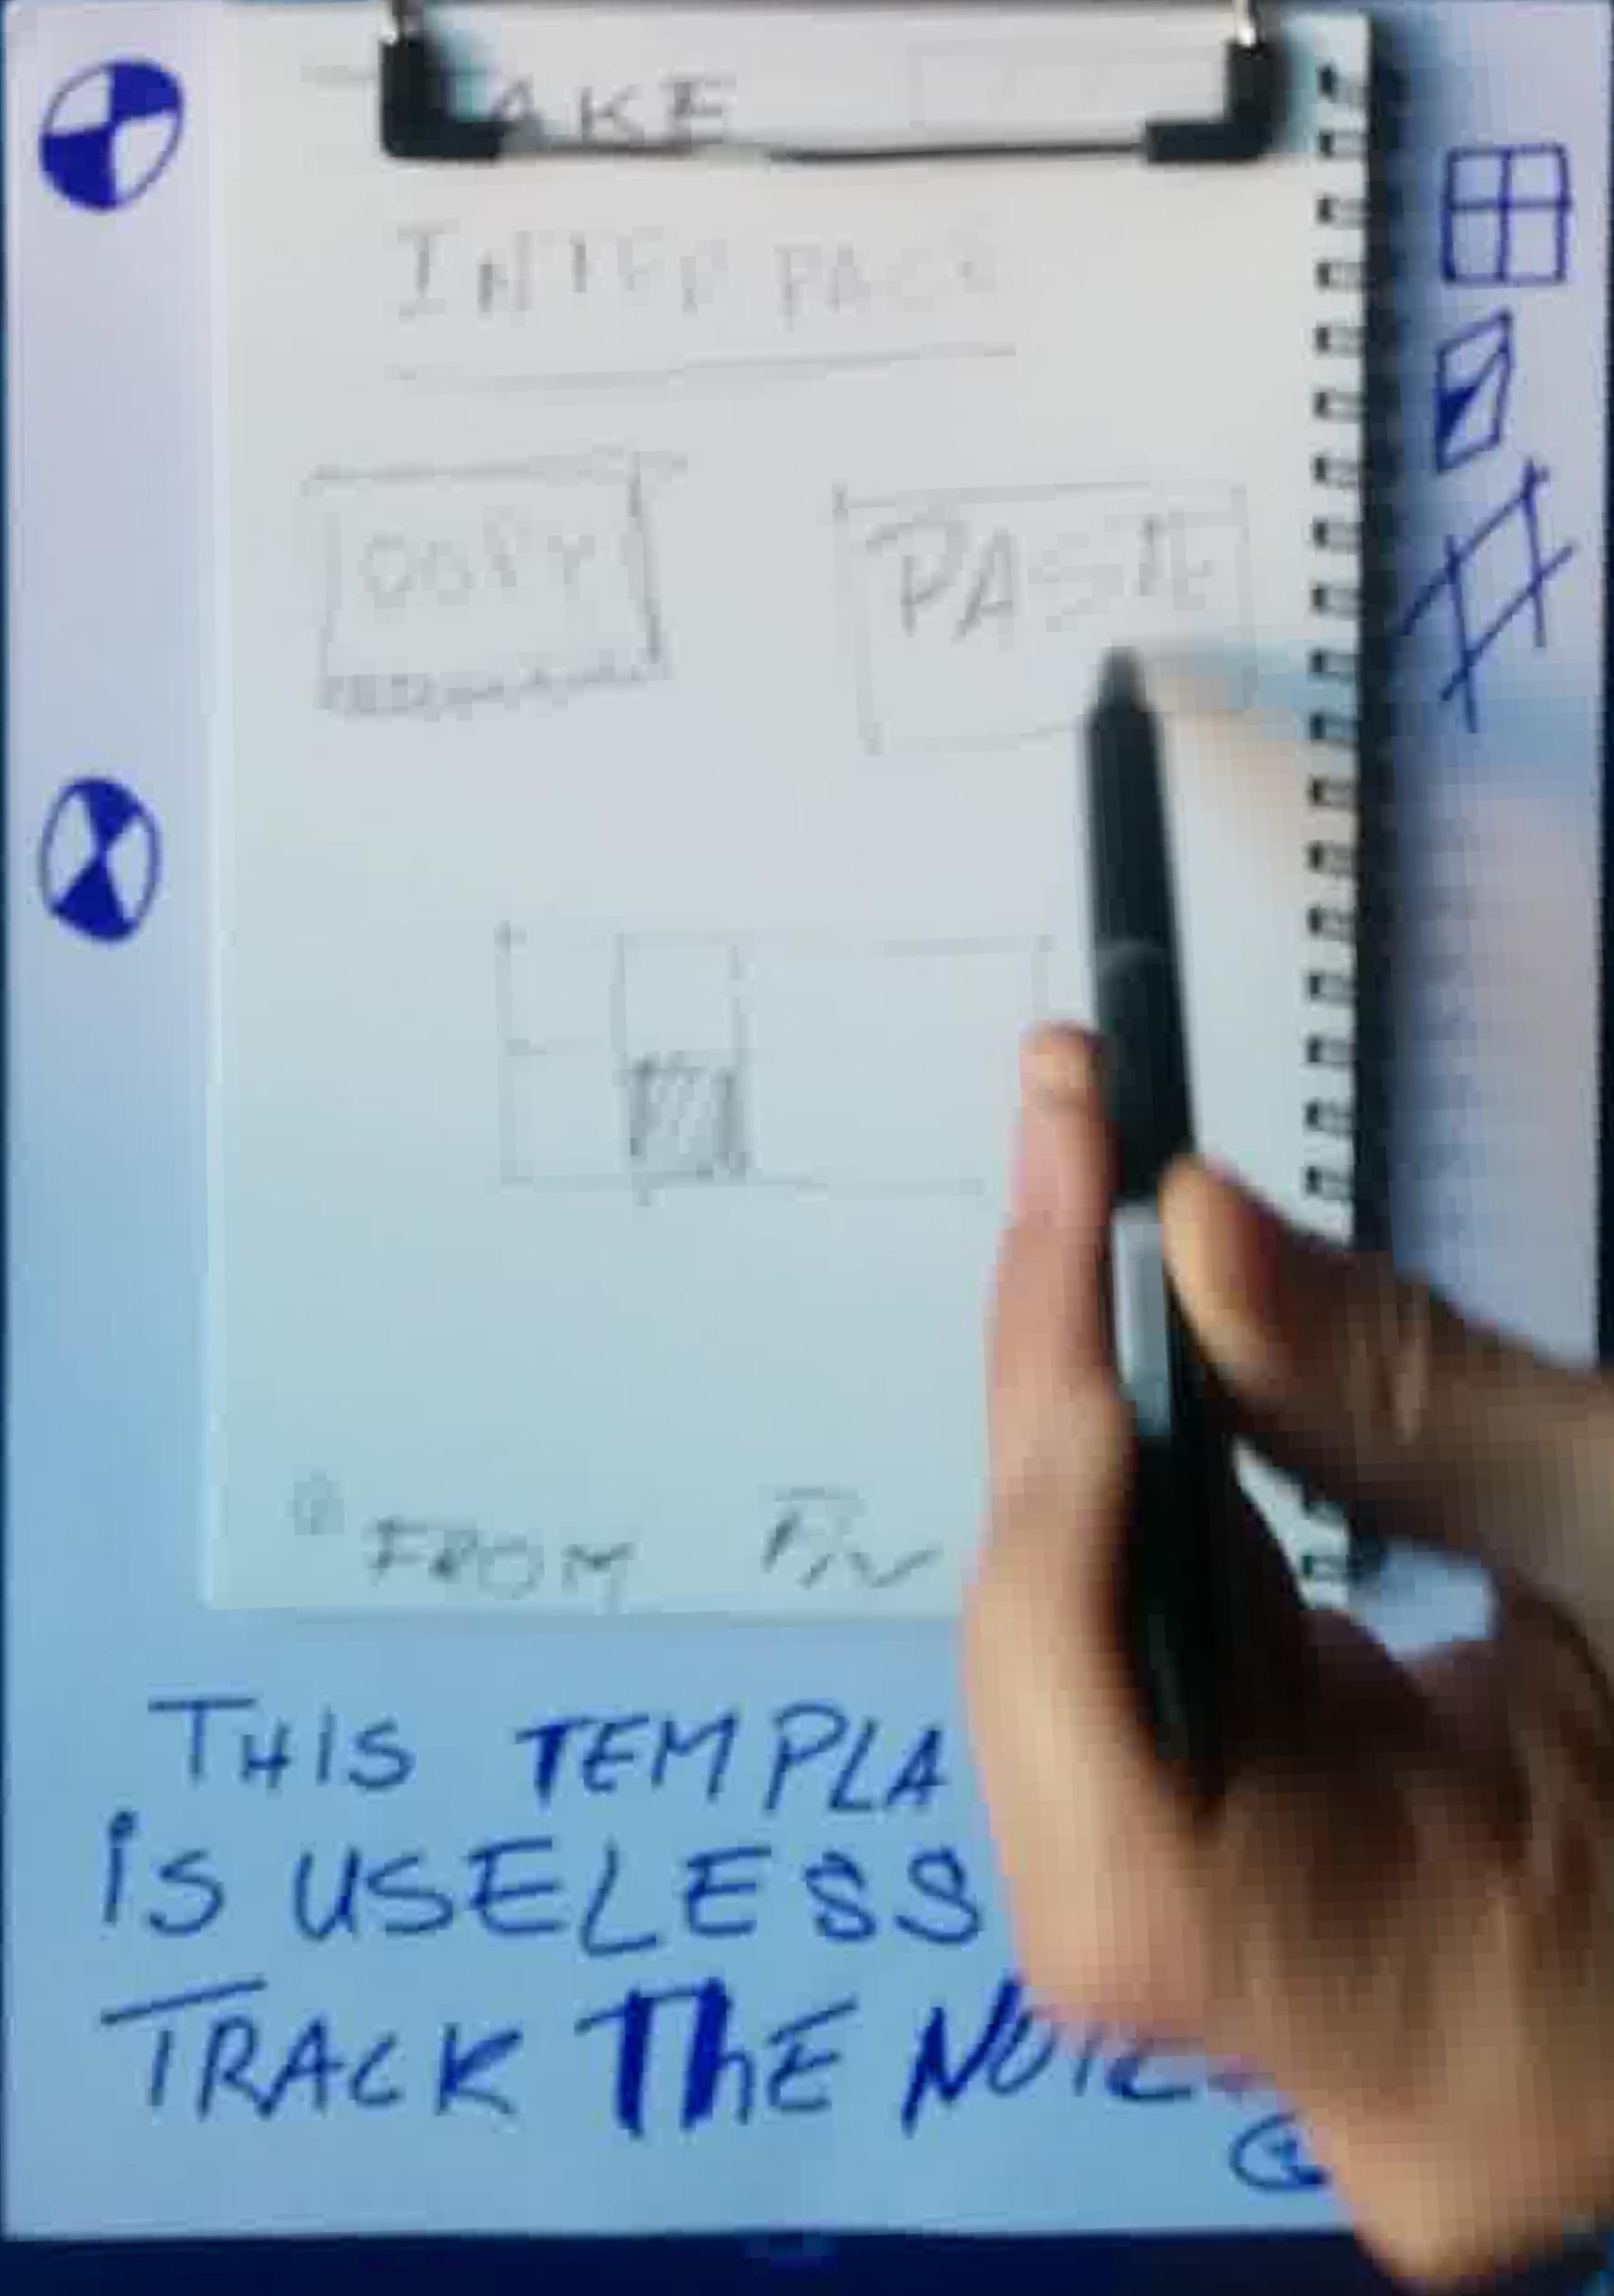 AKE
INTERFACE
COPY
PASTE
FROM
THIS TEMPLA
is USELESS
TRACK ThE